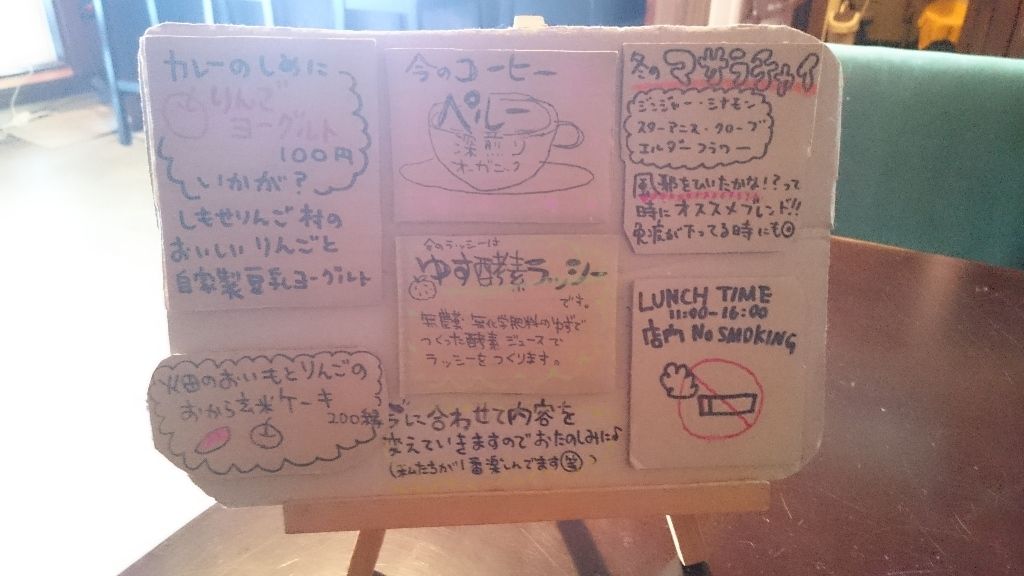 カレーのしめに
りんご
ヨーグルト
100円
いかが?
しもせりんご村の
おいしいりんごと
自家製豆乳ヨーグルト
畑のおいもとりんごの
おから玄米ケーキ
200
今のコーヒー
ペルー
深煎り
オーガニック
今のラッシーは
ゆず酵素ラッシー
です。
無農薬・無化学肥料のゆずで
つくった酵素ジュースで
ラッシーをつくります。
に合わせて内容を
変えていきますのでおたのしみに♪
(私たちが1番楽しんでます笑)
冬のマサラチャイ
ジンジャー・シナモン
スターアニス・クローブ
エルダーフラワー
風邪をひいたかな!?って
時にオススメブレンド!!
免疫が下ってる時にも
LUNCH TIME
11:00-16:00
店内 No SMOKING